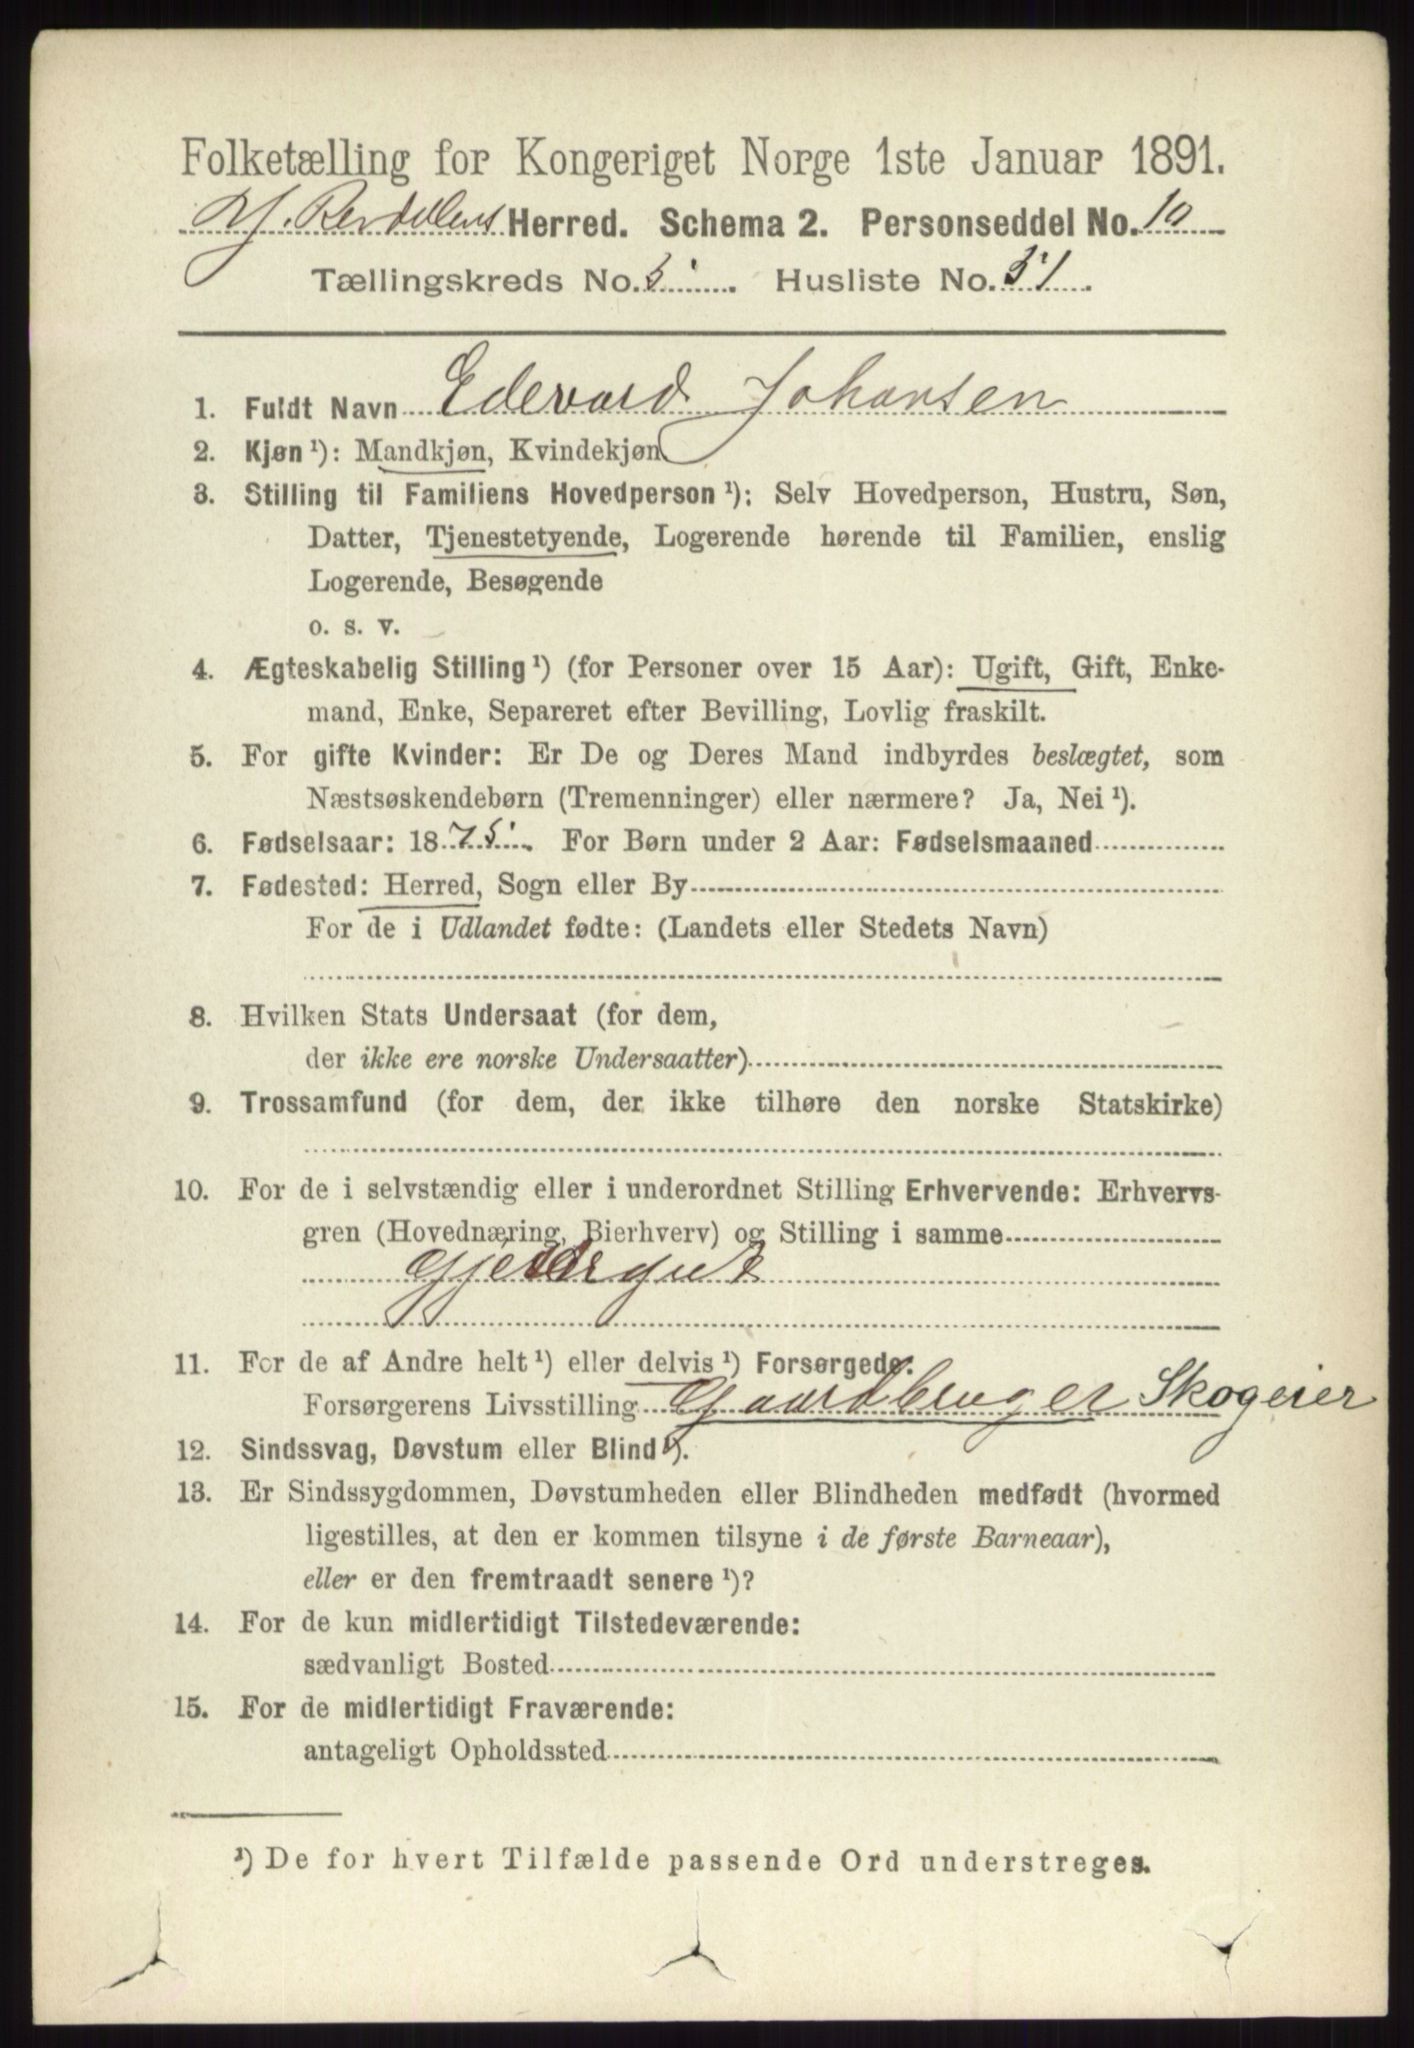 Folketælling for Kongeriget Norge 1ste Januar 1891.
N. Rendalens Herred. Schema 2. Personseddel No. 10
Tællingskreds No. 5. Husliste No. 51.
1. Fuldt Navn Edevard Johansen
2. Kjøn¹): Mandkjøn, Kvindekjøn
3. Stilling til Familiens Hovedperson¹): Selv Hovedperson, Hustru, Søn,
Datter, Tjenestetyende, Logerende hørende til Familien, enslig
Logerende, Besøgende
o. s. v.
4. Ægteskabelig Stilling¹) (for Personer over 15 Aar): Ugift, Gift, Enke-
mand, Enke, Separeret efter Bevilling, Lovlig fraskilt.
5. For gifte Kvinder: Er De og Deres Mand indbyrdes beslægtet, som
Næstsøskendebørn (Tremenninger) eller nærmere? Ja, Nei¹).
6. Fødselsaar: 1875. For Børn under 2 Aar: Fødselsmaaned
7. Fødested: Herred, Sogn eller By
For de i Udlandet fødte: (Landets eller Stedets Navn)
8. Hvilken Stats Undersaat (for dem,
der ikke ere norske Undersaatter)
9. Trossamfund (for dem, der ikke tilhøre den norske Statskirke)
10. For de i selvstændig eller i underordnet Stilling Erhvervende: Erhvervs-
gren (Hovednæring, Bierhverv) og Stilling i samme
Gjetergut
11. For de af Andre helt¹) eller delvis¹) Forsørgede.
Forsørgerens Livsstilling Gaardbruger Skogeier
12. Sindssvag, Døvstum eller Blind¹).
13. Er Sindssygdommen, Døvstumheden eller Blindheden medfødt (hvormed
ligestilles, at den er kommen tilsyne i de første Barneaar),
eller er den fremtraadt senere¹)?
14. For de kun midlertidigt Tilstedeværende:
sædvanligt Bosted
15. For de midlertidigt Fraværende:
antageligt Opholdssted
¹) De for hvert Tilfælde passende Ord understreges.